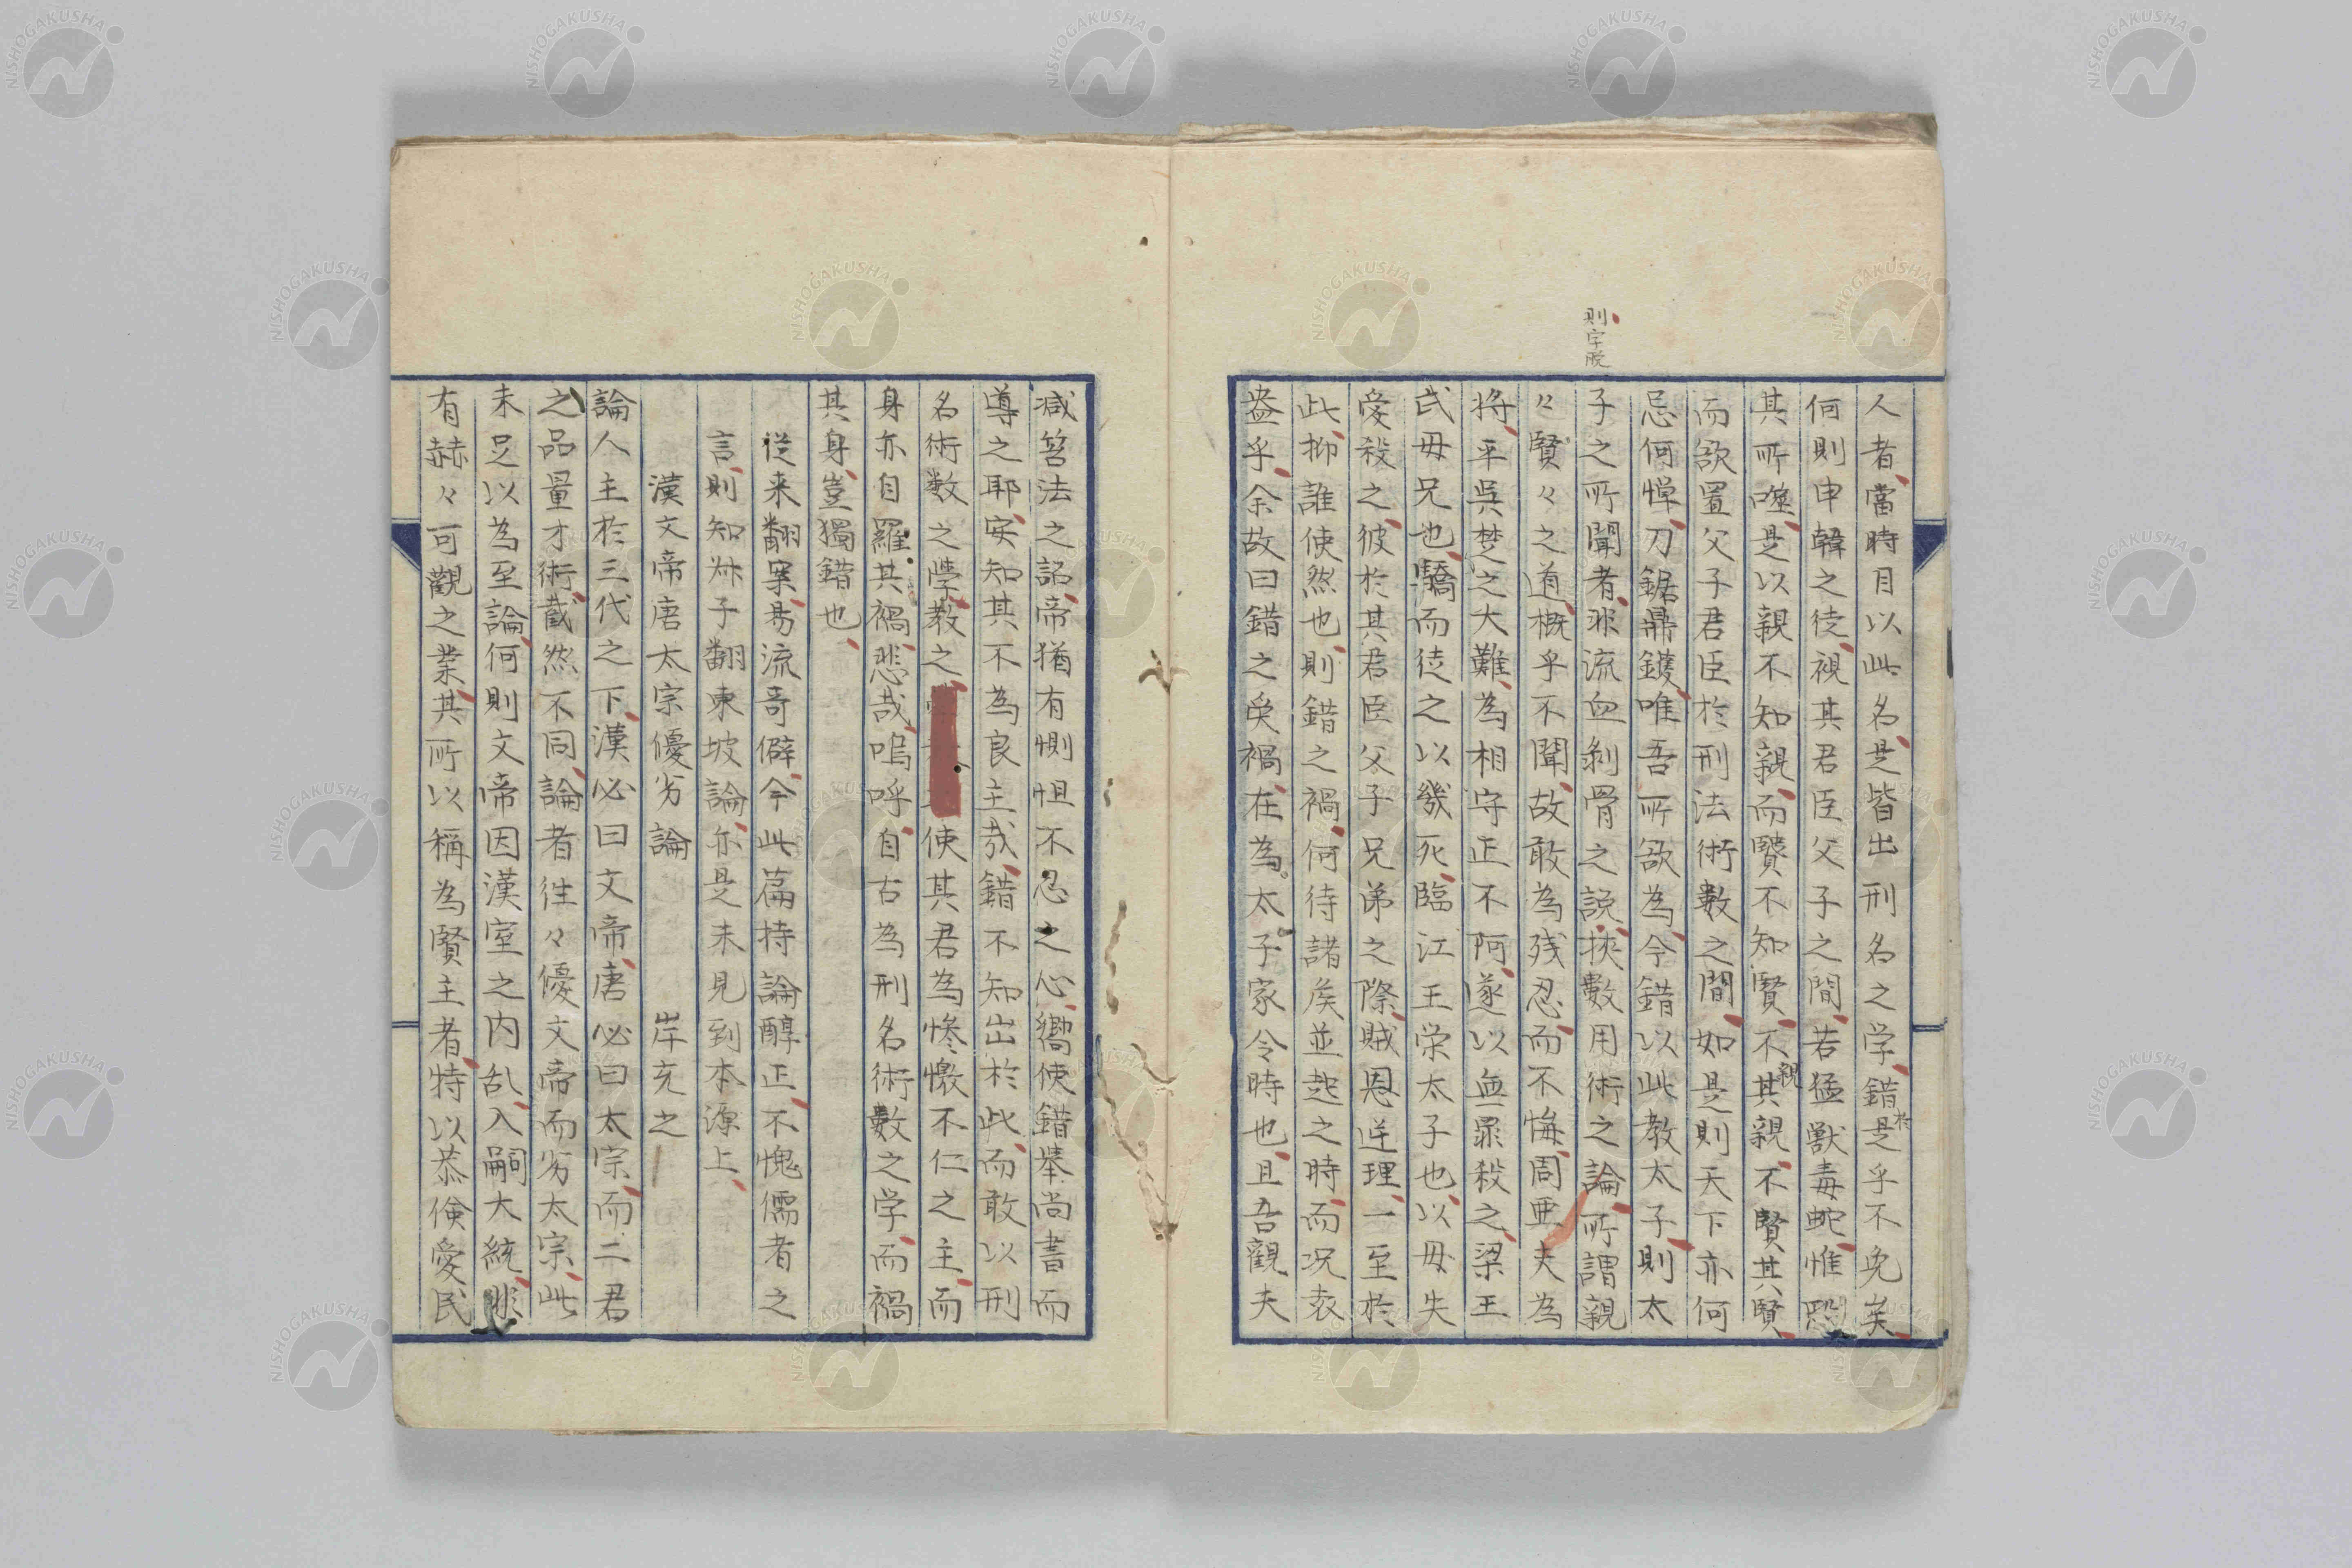 則字脱
人者當時目以此名是皆出刑名之学錯於是乎不免矣
何則申韓之徒視其君臣父子之間若猛獣毒蛇惟恐
其所噬是以親不知親而賢不知賢不親其親不賢其賢
而欲置父子君臣於刑法術數之間如是則天下亦何
忌何憚刀鋸鼎鑊唯吾所欲為今錯以此教太子則太
子之所聞者非流血剥骨之説挾數用術之論所謂親
々賢々之道概乎不聞故敢為残忍而不悔周亜夫為
将平呉楚之大難為相守正不阿遂以無罪殺之梁王
武毋兄也驕而徒之以幾死臨江王栄太子也以毋失
愛殺之彼於其君臣父子兄弟之際賊恩逆理一至於
此抑誰使然也則錯之禍何待諸矦並起之時而况袁
盎乎余故曰錯之受禍在為太子家令時也且吾觀夫
減笞法之詔帝猶有惻怛不忍之心嚮使錯挙尚書而
導之耶安知其不為良主哉錯不知出於此而敢以刑
名術数之学教之使其君為惨憿不仁之主而
身亦自羅其禍悲哉嗚呼自古為刑名術數之学而禍
其身豈獨錯也
従来翻案易流奇僻今此篇持論醇正不愧儒者之
言則知叔子翻東坡論亦是未見到本源上
漢文帝唐太宗優劣論 岸充之
論人主於三代之下漢必曰文帝唐必曰太宗而二君
之品量才術截然不同論者往々優文帝而劣太宗此
未足以為至論何則文帝因漢室之内乱入嗣大統非
有赫々可觀之業其所以稱為賢主者特以恭倹愛民
NISHOGAKUSHA